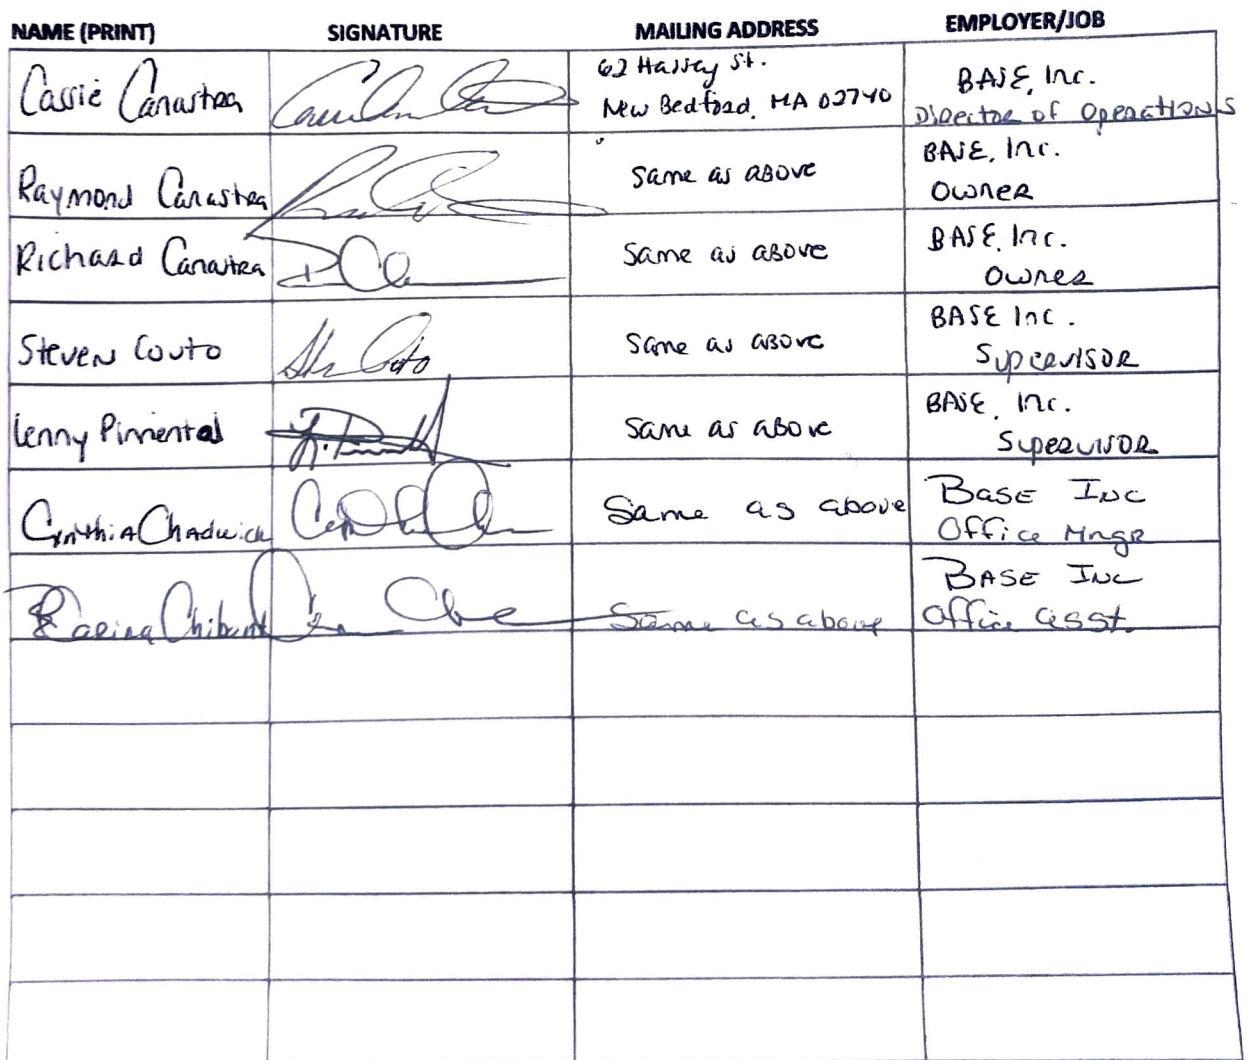 NAME (PRINT) SIGNATURE MAILING ADDRESS EMPLOYER/JOB
Cassie Canastra 62 Hassey St. BASE, Inc.
New Bedford, MA 02740 Director of Operations
Raymond Canastra Same as above BASE, Inc.
Owner
Richard Canastra Same as above BASE, Inc.
Owner
Steven Couto Steven Couto Same as above BASE Inc.
Supervisor
Lenny Pimental Same as above BASE, Inc.
Supervisor
Cynthia Chadwick Same as above Base Inc
Office Mngr
Same as above BASE Inc
Office asst.